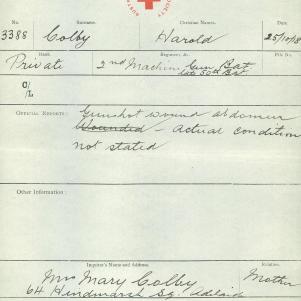 No. Surname. Christian Names. Date.
3388 Colby Harold 25/10/18
Rank. Regiment, &c. File No.
Private 2nd Machine Gun Bat
late 50th Bat
Official Reports: Gunshot wound abdomen
Wounded - Actual condition
not stated
Other Information:
Inquirer's Name and Address. Relation.
Mrs Mary Colby Mother
64 Hindmarsh Sq. Adelaide